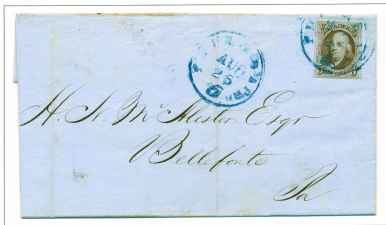 AUG
25
H. N. McAlister Esqr
Bellefonte
Pa